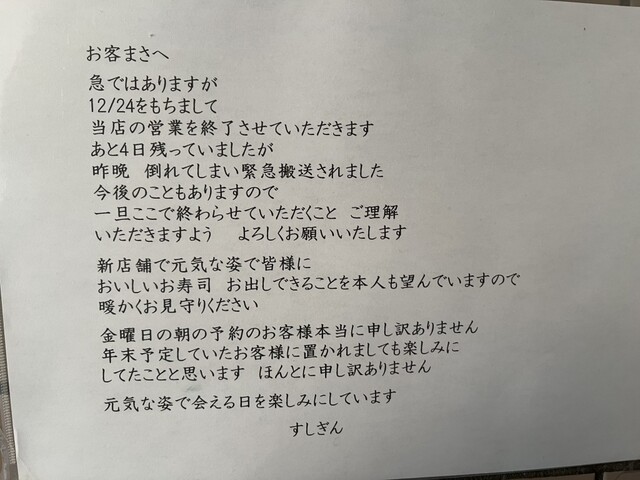 お客まさへ
急ではありますが
12/24をもちまして
当店の営業を終了させていただきます
あと4日残っていましたが
昨晩　倒れてしまい緊急搬送されました
今後のこともありますので
一旦ここで終わらせていただくこと　ご理解
いただきますよう　よろしくお願いいたします
新店舗で元気な姿で皆様に
おいしいお寿司　お出しできることを本人も望んでいますので
暖かくお見守りください
金曜日の朝の予約のお客様本当に申し訳ありません
年末予定していたお客様に置かれましても楽しみに
してたことと思います　ほんとに申し訳ありません
元気な姿で会える日を楽しみにしています
すしぎん